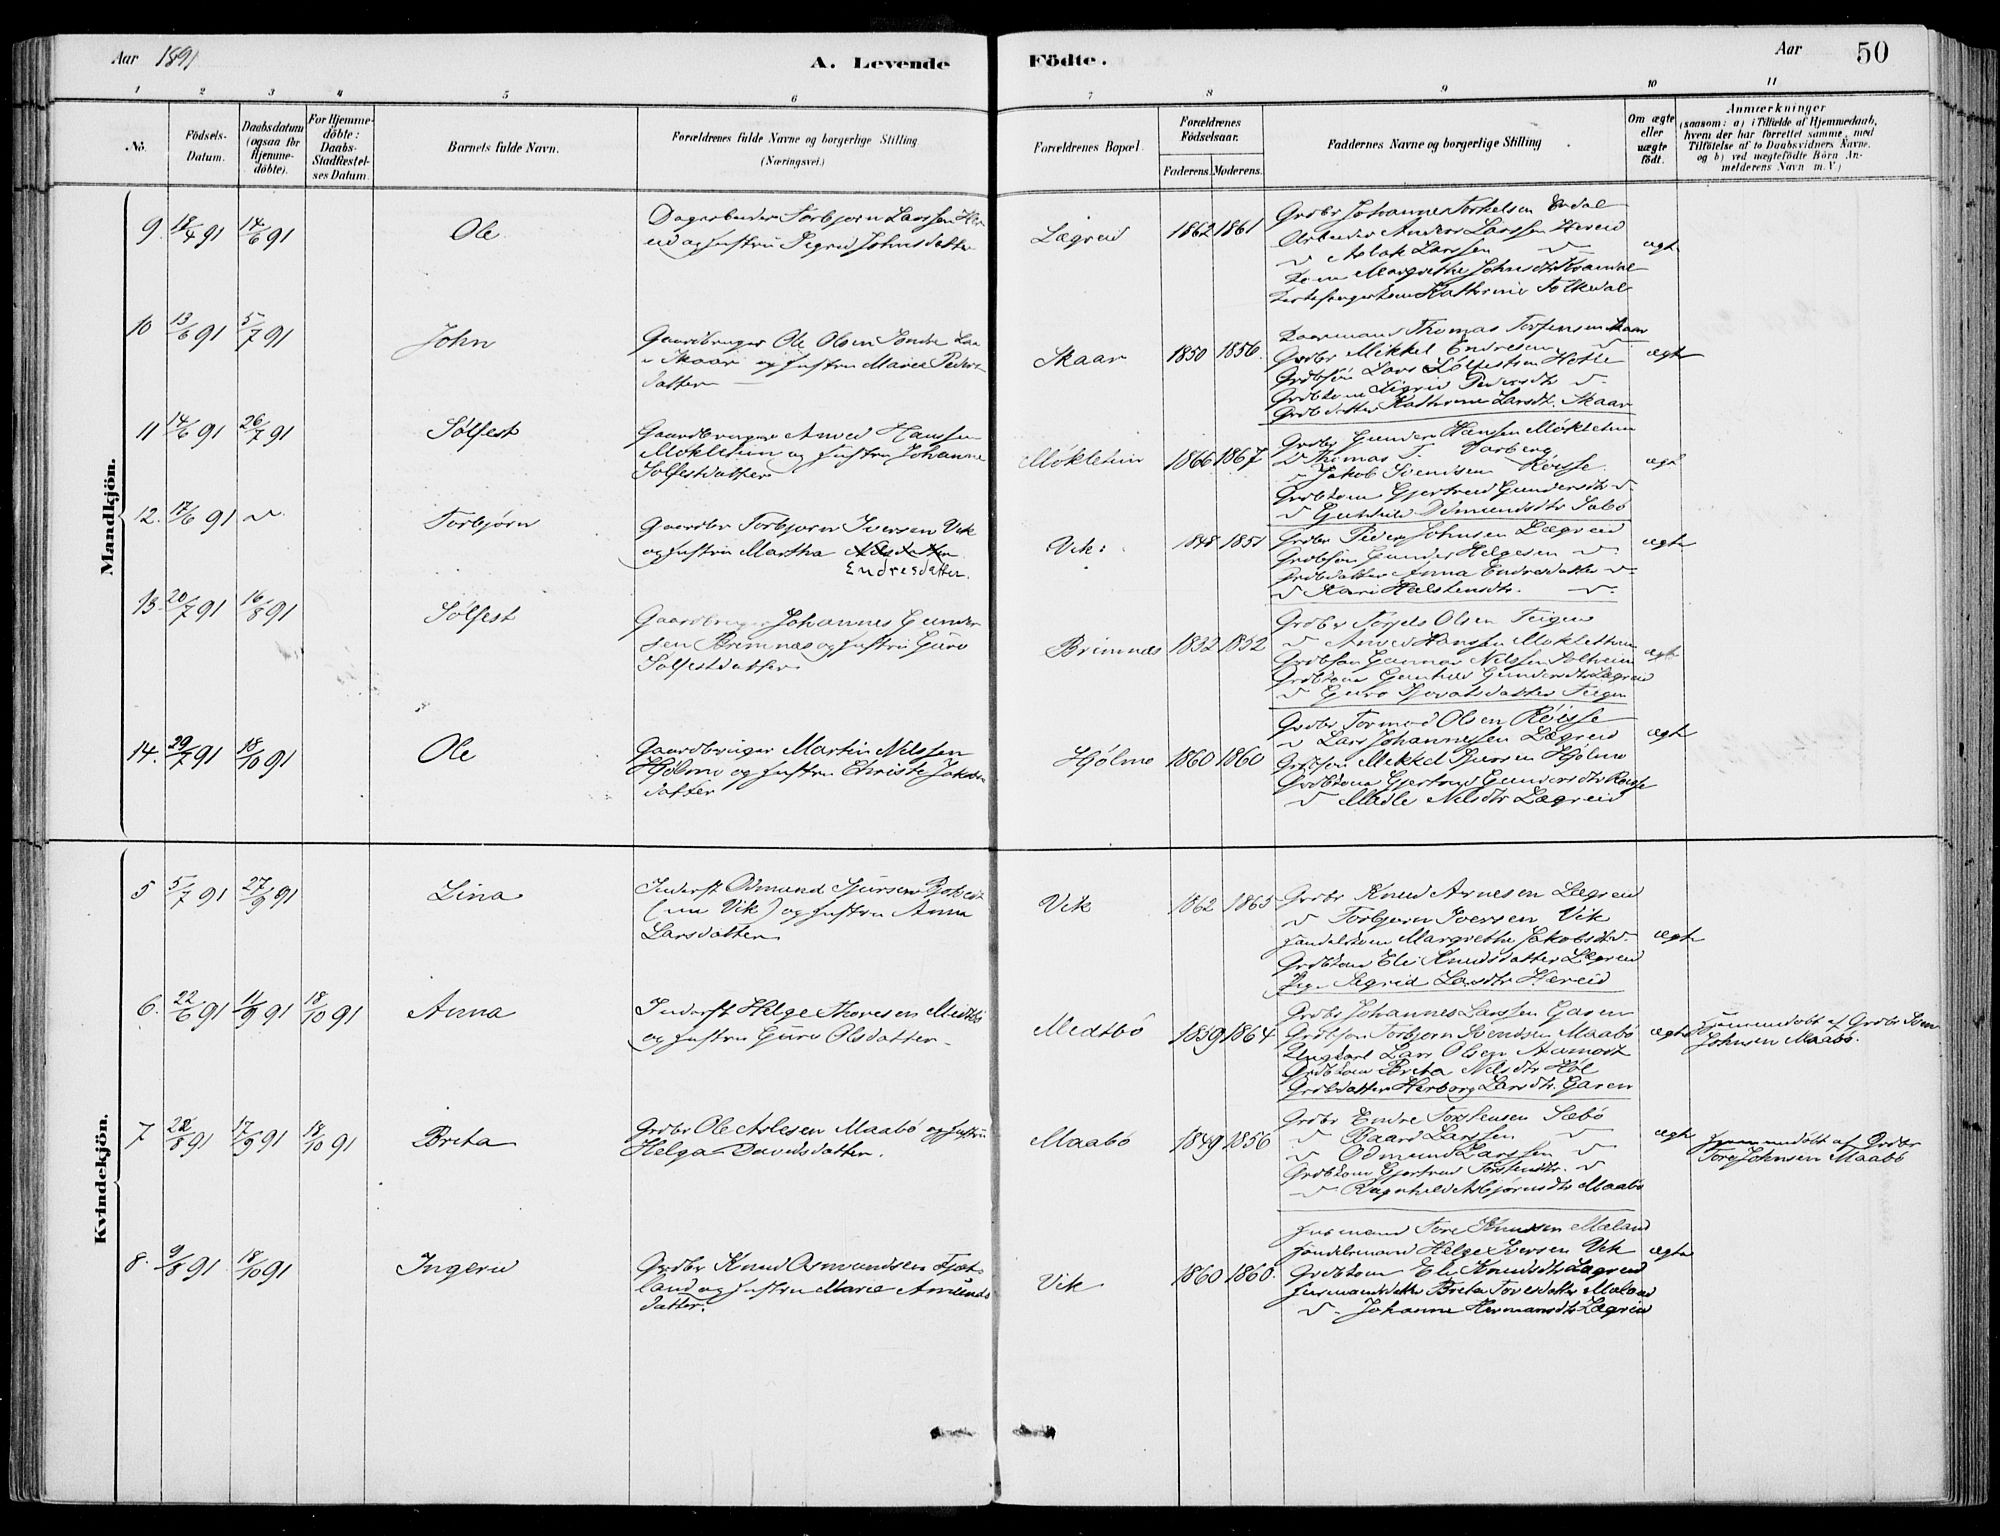 Aar 1891
A. Levende Födte.
Aar 50
1 2 3 4 5 6 7 8 9 10 11
No.
Födsels-Datum.
Daabsdatum (ogsaa for Hjemme-döbte).
For Hjemme-döbte: Daabs-Stadfæstel-ses Datum.
Barnets fulde Navn.
Forældrenes fulde Navne og borgerlige Stilling
(Næringsvei.)
Forældrenes Bopæl.
Forældrenes Födselsaar.
Faderens. Moderens.
Faddernes Navne og borgerlige Stilling
Om ægte eller uægte födt.
Anmærkninger
(saasom: a) i Tilfælde af Hjemmedaab, hvem der har forrettet samme, med Tilföielse af to Daabsvidners Navne, og b) ved uægtefödte Börn An-melderens Navn m. V.)
Mandkjön.
9. 18/4 91 14/6 91 Ole
Dagarbeider Torbjørn Larssen Her-
eid og Hustru Sigrid Johnsdatter
Lægreid 1862 1861
Grdbr Johannes Torkelsen Erdal
Arbeider Anders Larssen Hereid
" Aslak Larssen "
Kone Margrethe Johnsdtr
Kathrine Folkedal
ægte
10 13/6 91 5/7 91 John
Gaardbruger Ole Olsen Indre Laa
i Skaar og Hustru Maria Peders-
datter
Skaar 1850 1856.
Thomas Torfinsen Skaar
Grdbr Mikkel Endresen "
Grdbsøn Lars Sølfestsen
Grdbkone Sigrid Pedersdtr "
Grdbdatter Kathrine Larsdt. Skaar
ægte
11 14/6 91 26/7 91 Sølfest
Gaardbruger Amed Hanssen
Mökletun og Hustru Johanne
Sølfestdatter
Mökletun 1866 1867
Grdbr Gunder Hansen Mökletun
" Thomas T. Varberg
" Jakob Svendsen Röise
Grdbkone Gjertrud Gundersdtr "
" Gunhild Odmundsdtr Sæbö
ægte
12. 17/6 91 " Torbjørn
Gaardbr Torbjørn Iversen Vik
og Hustru Martha Nilsdatter
Endresdatter.
Vik: 1848 1851
Grdbr Peder Johnsen Lægreid
Grdbsøn Gunder Helgesen "
Grdbdatter Anna Endresdatter "
" Kari Halstensdtr. "
ægte
13. 20/7 91 16/8 91 Sølfest
Gaardbruger Johannes Gunder-
sen Brimnæs og Hustru Guro
Sølfestdatter
Brimnæs 1832 1852
Grdbr Torgels Olsen Teigen
" Amed Hanssen Mökletun
Grdbsøn Gunnar Nilssen Solheim
Grdbkone Gunhild Gundersdtr Lægreid
" Guro Sjovatsdatter Teigen
ægte
14. 29/7 91 18/10 91 Ole
Gaardbruger Martin Nilssen
Hjölmo og Hustru Christi Jakobs-
datter
Hjölmo 1860 1860
Grdbr Tormod Olsen Röisse
" Lars Johannessen Lægreid
Grdbsøn Mikkel Sjursen Hjölmo
Grdbkone Gjertrud Gundersdtr Röisse
" Medle Nilsdtr Lægreid
ægte
Kvindekjön.
5 5/7 91 27/9 91 Lina
Inderst Odmund Sjursen
(nu Vik) og Hustru Anna
Larsdatter
Vik 1862 1865
Grdbr Knud Arnesen Lægreid
" Torbjørn Iversen Vik
Handelskone Margrethe Jakobsdtr "
Grdbkone Eli Knudsdatter Lægreid
Pige Sigrid Larsdtr Hereid
ægte
6. 22/6 91 11/9 91 18/10 91 Anna
Inderst Helge Thoresen Medtbö
og Hustru Guro Olsdatter
Medtbö 1859 1864
Grdbr Johannes Larssen Garen
Grdbsøn Torbjørn Svendsen Maabö
Ungkarl Lars Olsen Aamodt
Grdbkone Breta Nilsdtr Höl
Grdbdatter Herborg Larsdtr. Garen
ægte
Hjemmedöbt af Grdbr Sven
Johnsen Maabö.
7 22/8 91 17/9 91 18/10 91 Breta
Grdbr Ole Aslesen Maabö og Hustru
Helga Davidsdatter.
Maabö 1849 1856
Grdbr Endre Torstensen Sæbö
" Baard Larssen "
" Odmund Larssen "
Grdbkone Gjertrud Torstensdtr. "
" Ragnhild Asbjørnsdtr Maabö
ægte
Hjemmedöbt af Grdbr
Tore Johnsen Maabö
8. 9/8 91 18/10 91 Ingerid
Grdbr Knud Osmundsen Fjæt-
land og Hustru Marie Amunds-
datter.
Vik 1860 1860.
Husmand Tore Knudsen Mæland
Handelsmand Helge Iversen Vik
Grdbkone Eli Knudsdtr Lægreid
Husmandsdatter Breta Toresdatter Mæland
" Johanne Hermansdtr Lægreid
ægte